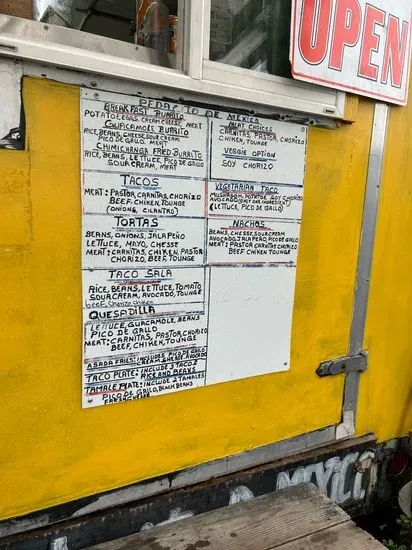 OPEN
PEDACITO DE MEXICO
BREAKFAST BURRITO
POTATO, EGGS, CREAM, MEAT
GUACAMOLE BURRITO
RICE, BEANS, CHEESE, SOUR CREAM,
PICO DE GALLO, MEAT
CHIMICHANGA FRIED BURRITO
RICE, BEANS, LETTUCE, PICO DE GALLO,
SOUR CREAM, MEAT
MEAT CHOICES
CARNITAS, PASTOR, CHORIZO
BEEF, CHICKEN, TOUNGE
VEGGIE OPTION
SOY CHORIZO
TACOS
MEAT: PASTOR, CARNITAS, CHORIZO
BEEF, CHIKEN, TOUNGE
(ONIONG, CILANTRO)
VEGETARIAN TACO
MUSHROOM, POTATOE, SOY CHORIZO
AVOCADO (ONE INGREDIENT)
(LETTUCE, PICO DE GALLO)
TORTAS
BEANS, ONIONS, JALAPEÑO
LETTUCE, MAYO, CHESSE
MEAT: CARNITAS, CHIKEN, PASTOR
CHORIZO, BEEF, TOUNGE
NACHOS
BEANS, CHESSE, SOUR CREAM
AVOCADO, JALAPEÑO, PICO DE GALLO
MEAT: PASTOR CARNITAS CHORIZO
BEEF CHIKEN TOUNGE
TACO SALA
RICE, BEANS, LETTUCE, TOMATO
SOUR CREAM, AVOCADO, TOUNGE
QUESADILLA
LETTUCE, GUACAMOLE, BEANS
PICO DE GALLO
MEAT: CARNITAS, PASTOR CHORIZO
BEEF, CHIKEN, TOUNGE
ASADA FRIES: INCLUDES PICO DE GALLO
TACO PLATE: INCLUDE 3 TACOS
RICE AND BEANS
TAMALE PLATE: INCLUDE 2 TAMALES
PICO DE GALLO, BLACK BEANS
FRESH CHESSE
MEXICO